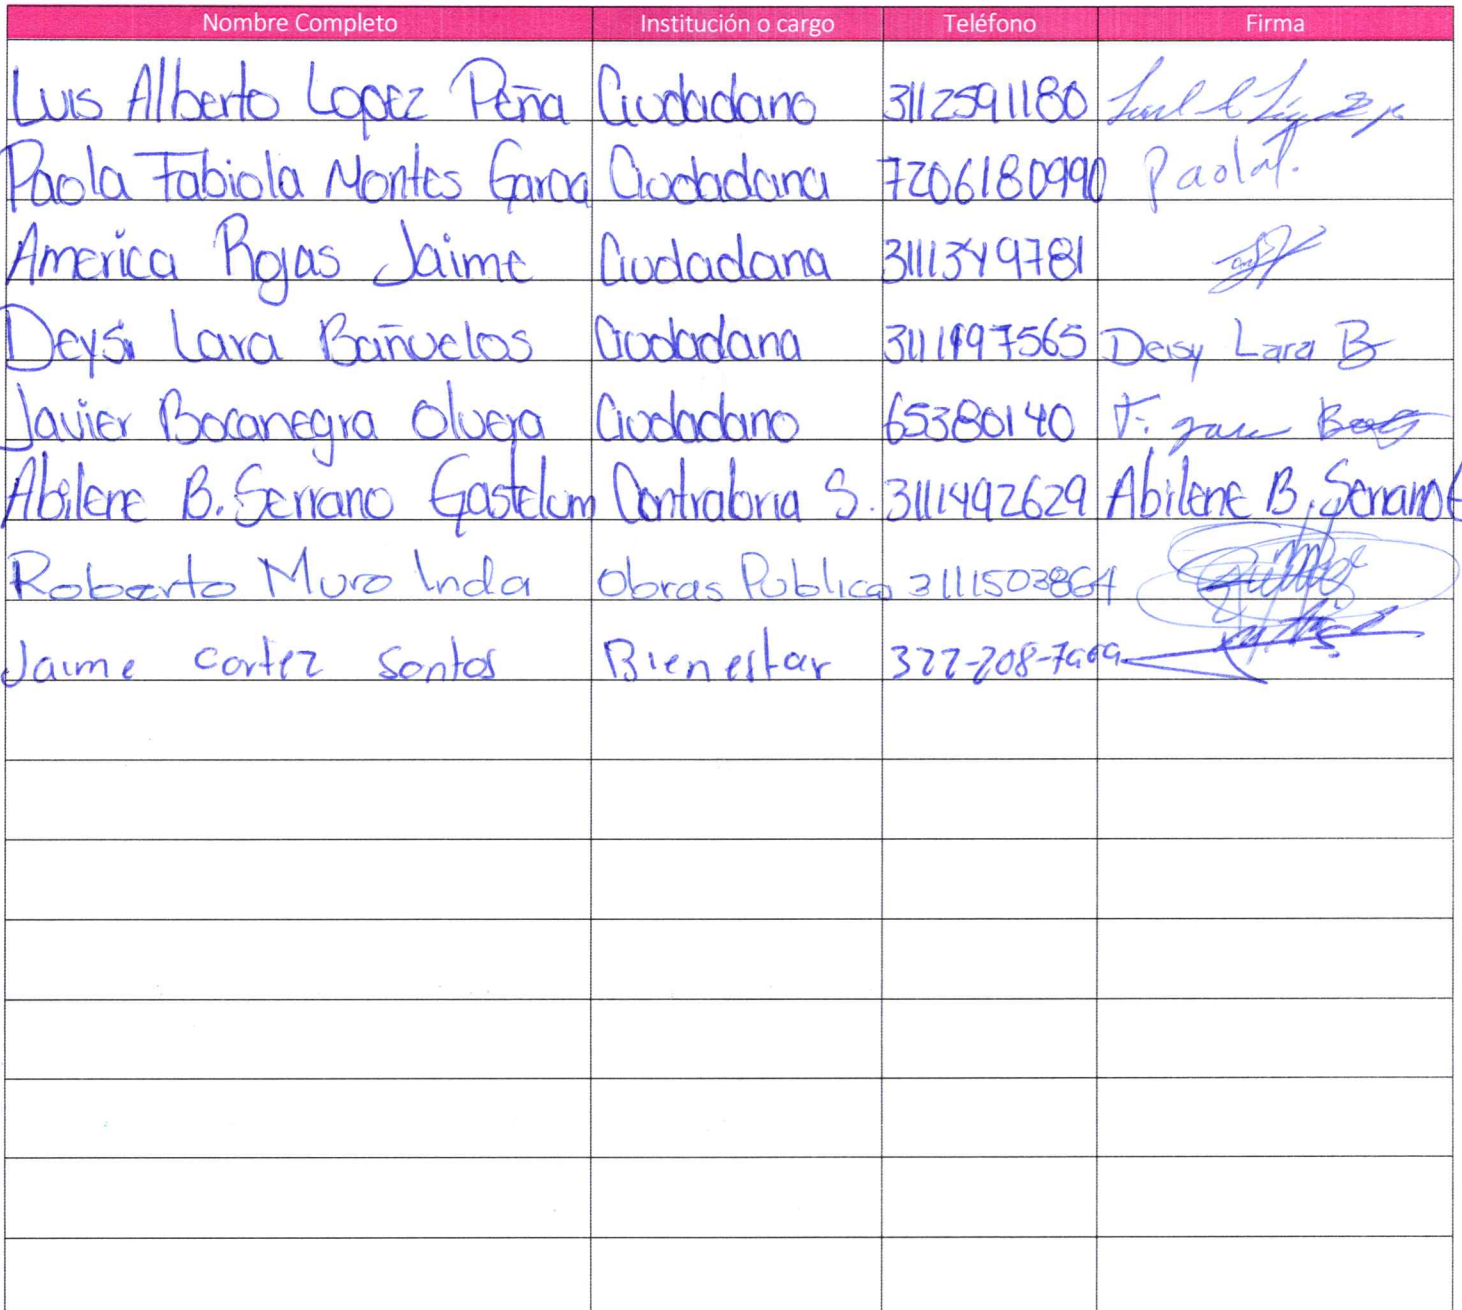 Nombre Completo Institución o cargo Teléfono Firma
Luis Alberto Lopez Peña Ciudadano 3112591180
Paola Fabiola Montes Garcia Ciudadana 7206180990 Paola
America Rojas Jaime Ciudadana 3111349781
Deysi Lara Bañuelos Ciudadana 3111997565 Deisy Lara B
Javier Bocanegra Olvera Ciudadano 65380140
Abilene B. Serrano Gastelum Contraloria S. 3111492629 Abilene B. Serrano G
Roberto Muro Inda Obras Publicas 3111503864
Jaime cortez Santos Bienestar 322-208-